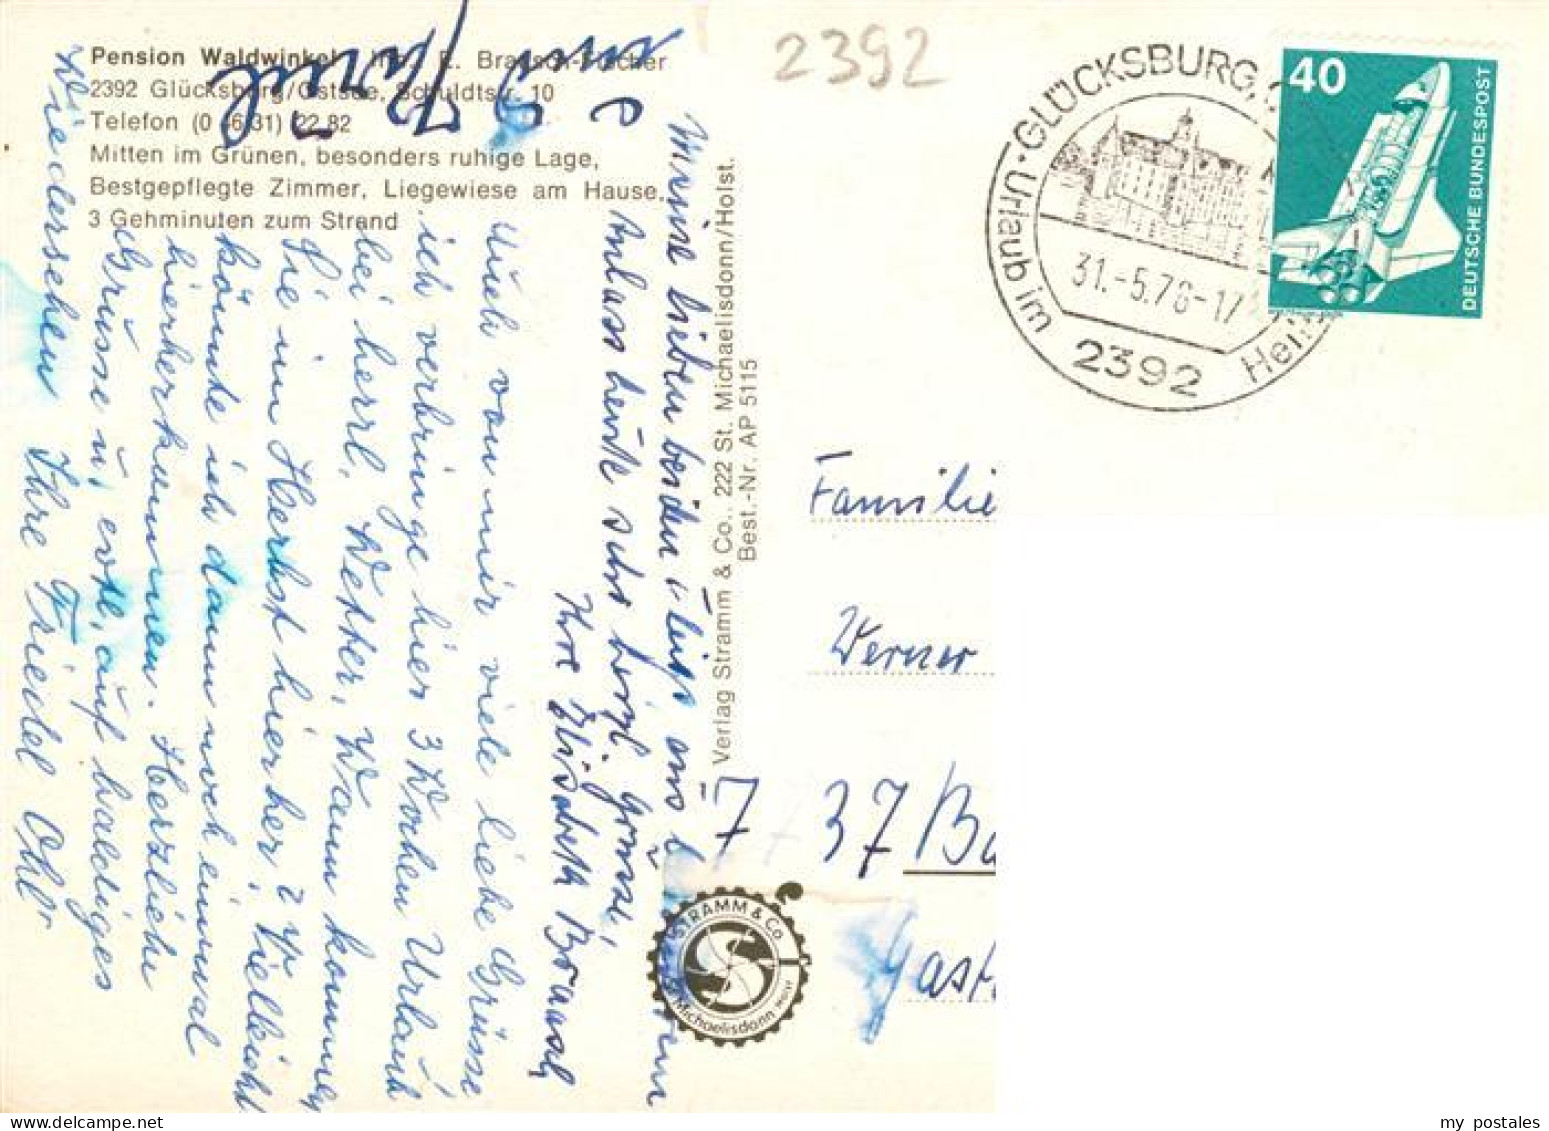 Pension Waldwinkel
2392 Glücksburg/Ostsee, Schuldtstr. 10
Telefon (0 46 31) 22 82
Mitten im Grünen, besonders ruhige Lage,
Bestgepflegte Zimmer, Liegewiese am Hause,
3 Gehminuten zum Strand
Meine lieben beiden
Anlass heute sehr herzl. Grüsse,
Ihre Elisabeth Braasch
Auch von mir viele liebe Grüsse
ich verbringe hier 3 Wochen Urlaub
bei herrl. Wetter, Wann kommen
Sie im Herbst hierher? Vielleicht
könnte ich dann noch einmal
hierherkommen. Herzliche
Grüsse u. evtl. auf baldiges
Wiedersehen Ihre Friedel Ohl
Verlag Stramm & Co., 222 St. Michaelisdonn/Holst.
Best.-Nr. AP 5115
STRAMM & Co
Michaelisdonn
2392
GLÜCKSBURG,
Urlaub im
31.-5.76-17
2392
40
DEUTSCHE BUNDESPOST
Familie
Werner
7 37 Ba
Gast
my postales